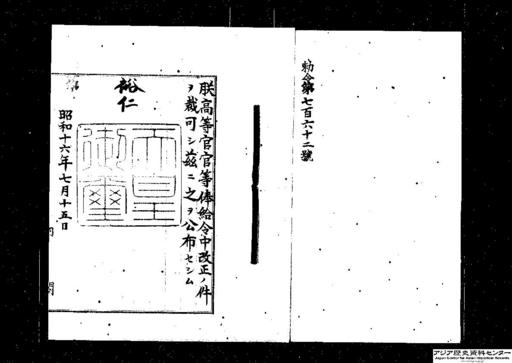 勅令第七百六十二號
朕高等官官等俸給令中改正ノ件
ヲ裁可シ茲ニ之ヲ公布セシム
裕仁
天皇御璽
昭和十六年七月十五日
アジア歴史資料センター
Japan Center for Asian Historical Records